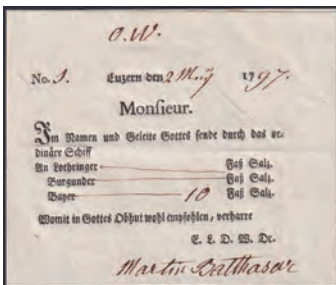 O. W.
No. 1. Luzern den 2 Maÿ 1797.
Monsieur.
Im Namen und Geleite Gottes sende durch das or-
dinäre Schiff
An Lothringer Faß Salz.
Burgunder Faß Salz.
Bayer 10 Faß Salz.
Womit in Gottes Obhut wohl empfohlen, verharre
E. L. D. W. Dr.
Martin Balthasar